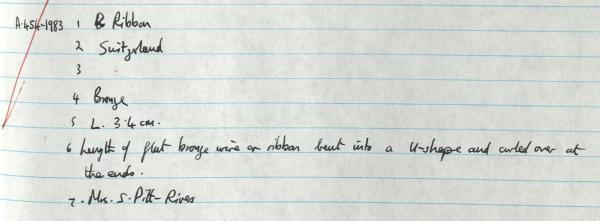 A.454-1983 1 Ribbon
2 Switzerland
3
4 Bronze
5 L. 3.4 cm.
6 Length of flat bronze wire or ribbon bent into a U-shape and curled over at
the ends.
7. Mrs. S. Pitt-Rivers